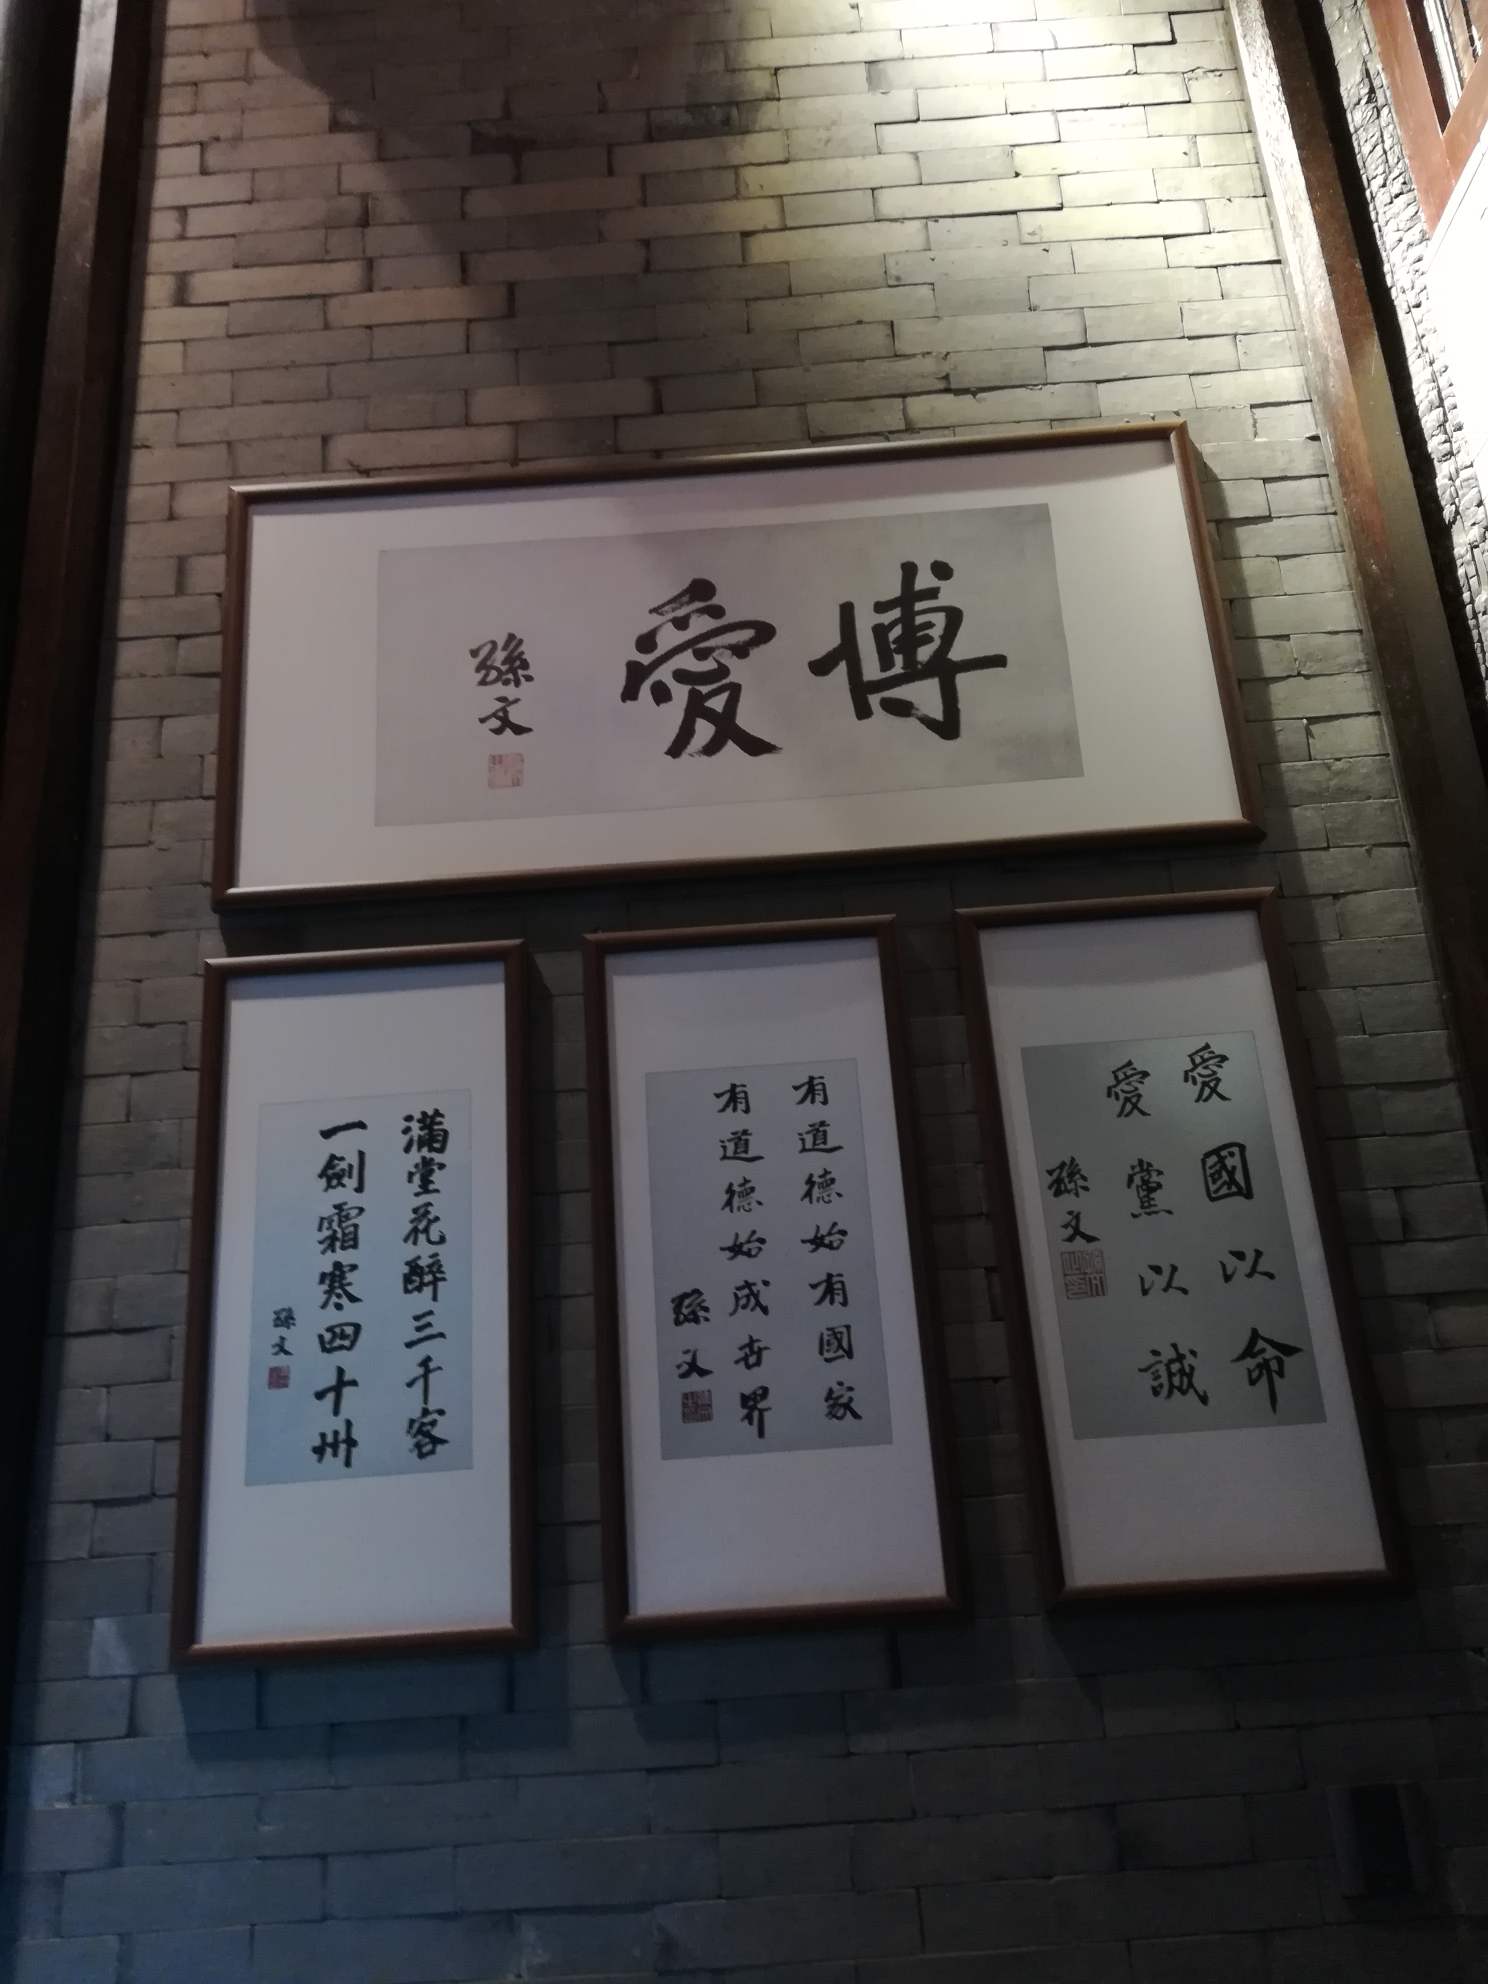 博愛
孫文
愛國以命
愛黨以誠
孫文
有道德始有國家
有道德始成世界
孫文
滿堂花醉三千客
一劍霜寒四十州
孫文